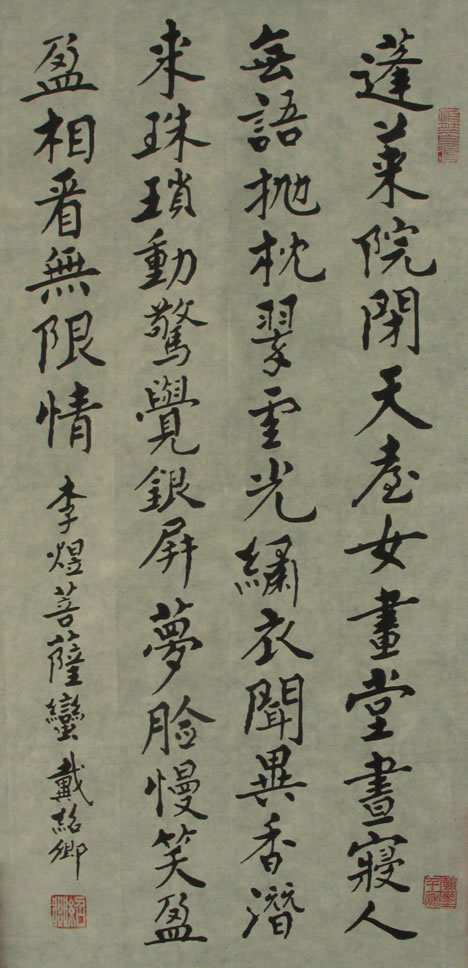 蓬莱院閉天臺女畫堂晝寢人
無語抛枕翠雲光繡衣聞異香潛
来珠瑣動驚覺銀屏夢脸慢笑盈
盈相看無限情
李煜菩薩蠻戴紹卿